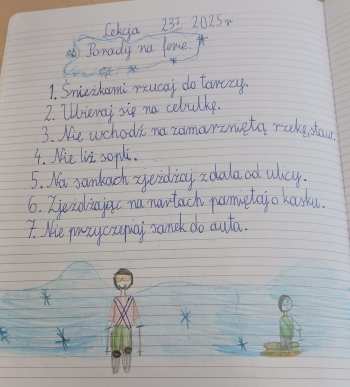 Lekcja 23 I 2025 r
Porady na ferie.
1. Śnieżkami rzucaj do tarczy.
2. Ubieraj się na cebulkę.
3. Nie wchodź na zamarzniętą rzekę, staw.
4. Nie liż sopli.
5. Na sankach zjeżdżaj z dala od ulicy.
6. Zjeżdżając na nartach pamiętaj o kasku.
7. Nie przyczepiaj sanek do auta.